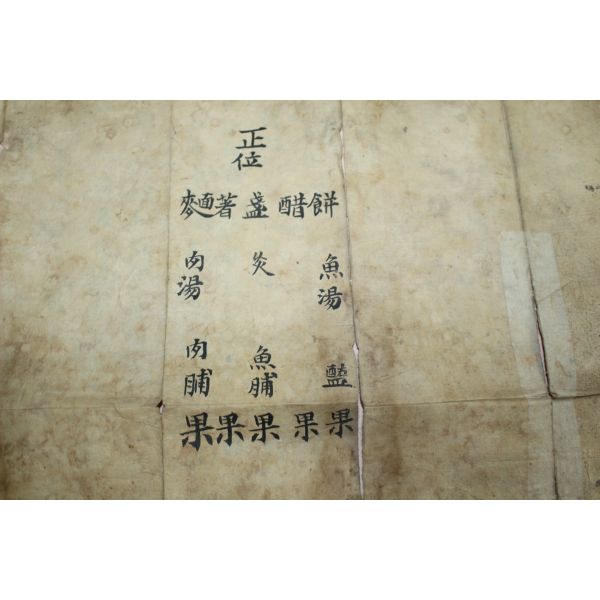 正位
麵 著 盞 醋 餅
肉湯 炙 魚湯
肉脯 魚脯 醢
果 果 果 果 果